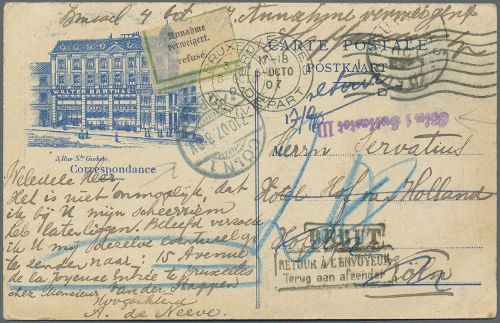 Brussel 4 Oct 07. Annahme verweigert
Annahme
verweigert.
refusé
BRUXELLES
DÉPART
17-18
OCTO
07
CARTE POSTALE
POSTKAART
retour
WALTER BARTH
5, Rue Ste Gudule.
Correspondance
CÖLN 1
Cöln
Herrn Servatius
Hotel Hof van Holland
Köln
REBUT
RETOUR À L'ENVOYEUR
Terug aan afzender
Weledele Heer
Het is niet onmogelijk, dat
ik bij U mijn scheerriem
heb laten liggen. Beleefd verzoek
ik U mij dezelve eventueel op
te zenden naar: 15 Avenue
de la Joyeuse Entrée te Bruxelles
chez Monsieur Van der Stappen
Hoogachtend
A. de Neeve.